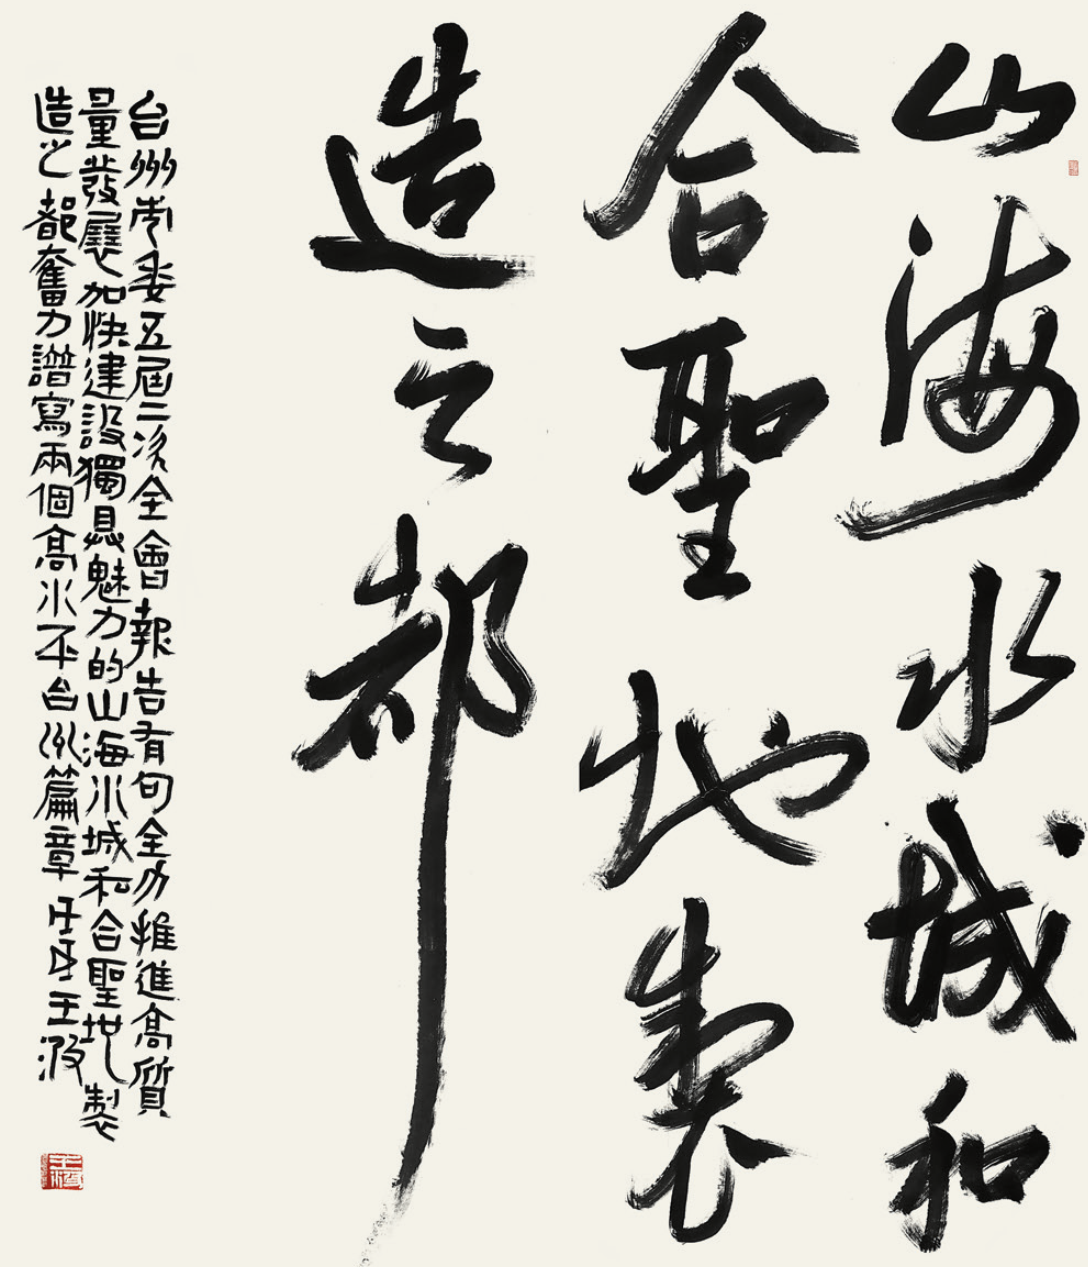 山海水城和
合聖地製
造之都
台州市委五屆二次全會報告有句全力推進高質
量發展加快建設獨具魅力的山海水城和合聖地製
造之都奮力譜寫兩個高水平台州篇章 王波